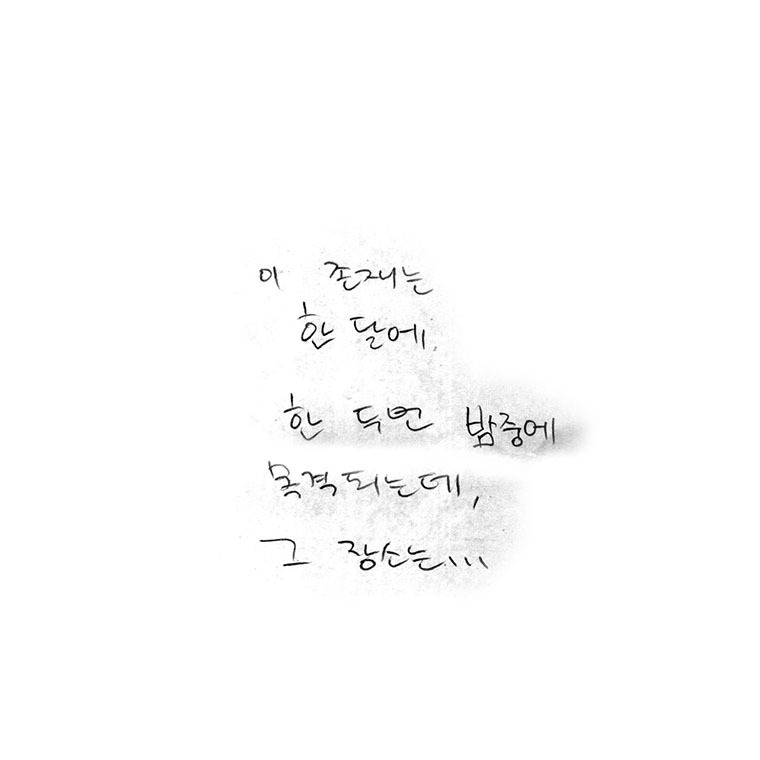 이 존재는
한 달에
한 두번 밤중에
목격되는데,
그 장소는...